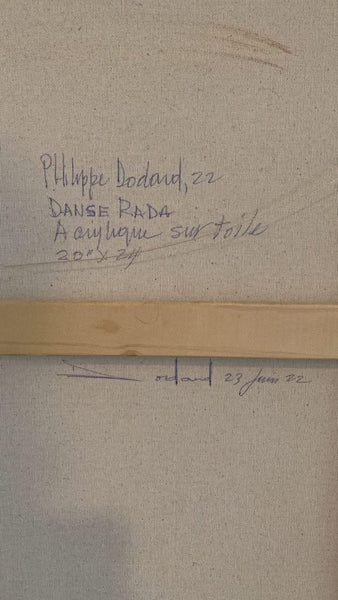 Philippe Dodard, 22
DANSE RADA
Acrylique sur toile
20" X 24
Dodard 23 Juin 22